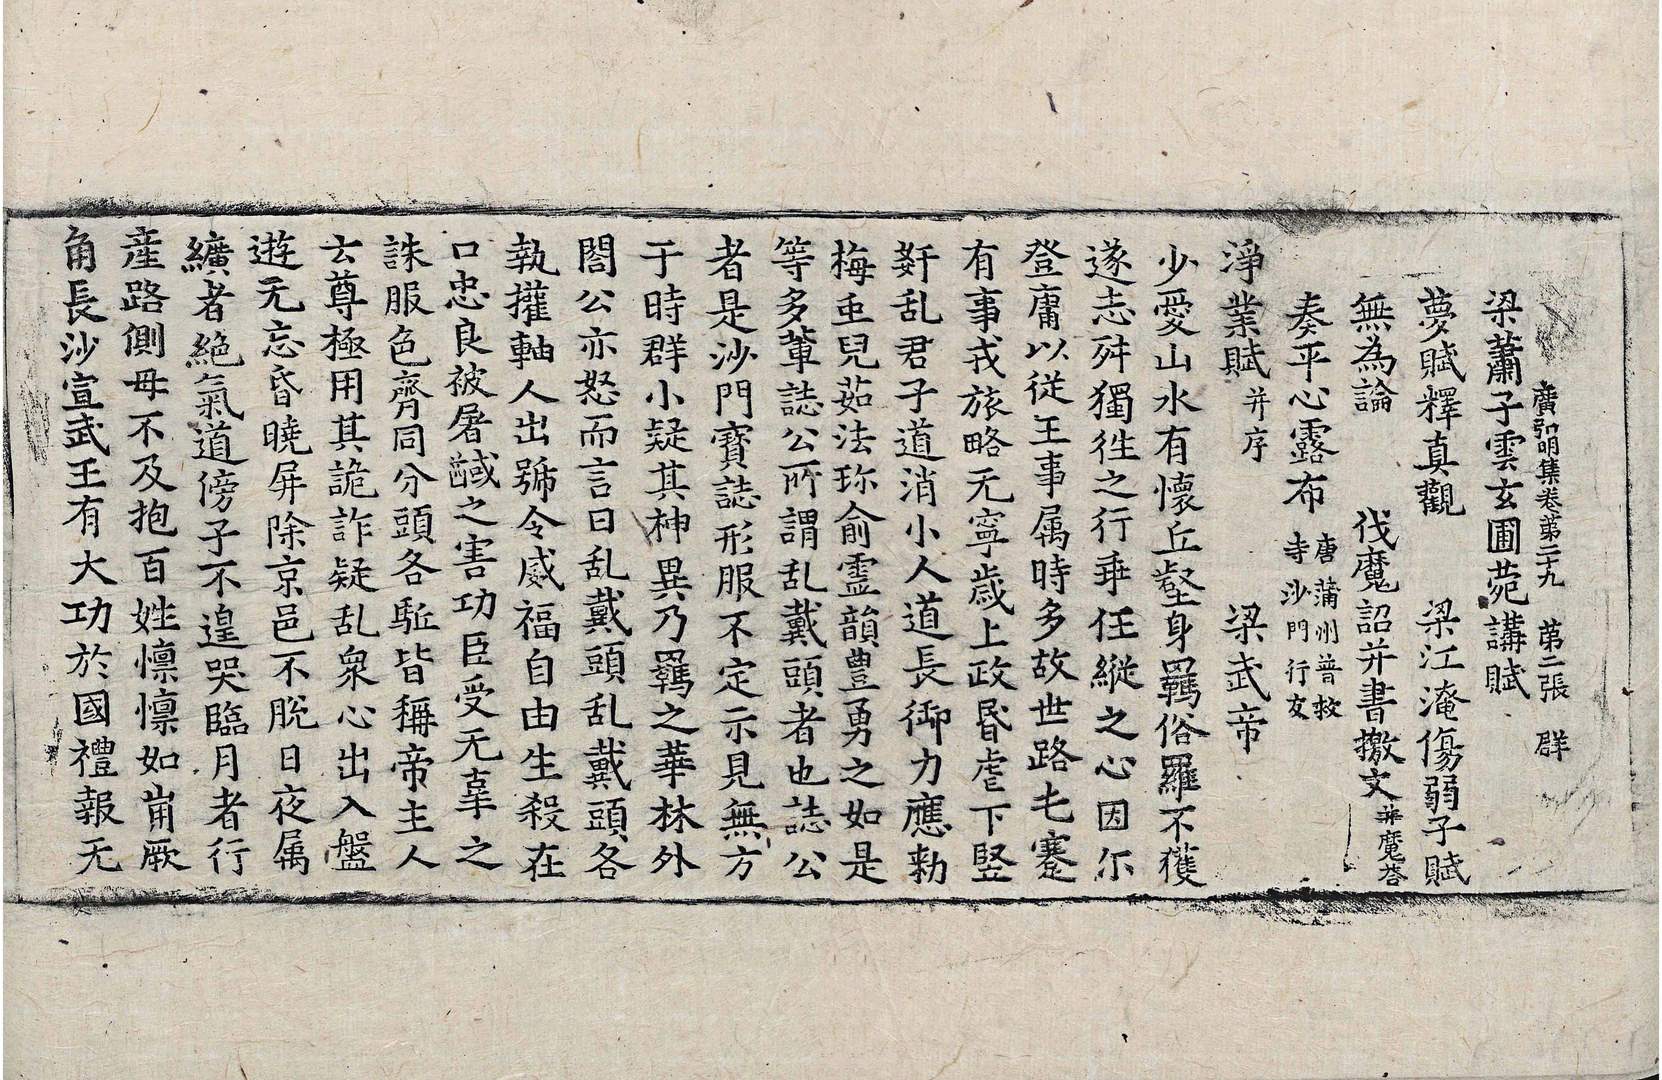 廣弘明集卷第二十九　第二張　群
梁蕭子雲玄圃菀講賦
夢賦釋真觀　梁江淹傷弱子賦
無為論　伐魔詔并書檄文并魔荅
奏平心露布　唐蒲州普救寺沙門行友
淨業賦并序　梁武帝
少愛山水有懷丘壑身羈俗羅不獲
遂志舛獨往之行乖任縱之心因尓
登庸以從王事属時多故世路屯蹇
有事戎旅略无寧歳上政昬虐下竪
姧乱君子道消小人道長御力應勑
梅䖝兒茹法珎俞霊韻豊勇之如是
等多輩誌公所謂乱戴頭者也誌公
者是沙門寶誌形服不定示見無方
于時群小疑其神異乃羈之華林外
閤公亦怒而言曰乱戴頭乱戴頭各
執擢軸人出号令威福自由生殺在
口忠良被屠馘之害功臣受无辜之
誅服色齊同分頭各駈皆稱帝主人
云尊極用其詭詐疑乱衆心出入盤
遊无忘昏曉屏除京邑不脫日夜属
纊者絶氣道傍子不遑哭臨月者行
産路側母不及抱百姓懔懔如崩厥
角長沙宣武王有大功於國禮報无